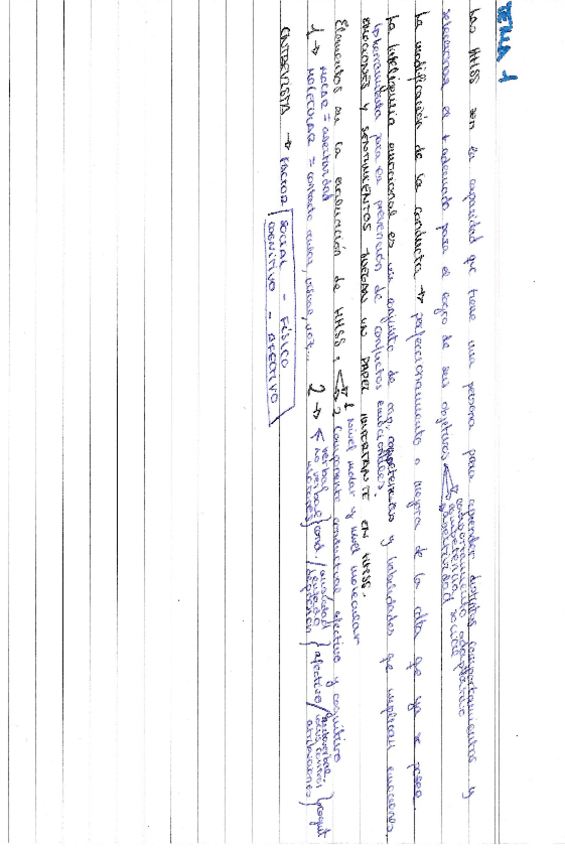 TEMA 1
Las HHSS son la capacidad que tiene una persona para aprender distintos comportamientos y
seleccionar el + adecuado para el logro de sus objetivos
comportamiento adaptativo
competencia social
asertividad
La modificación de la conducta → perfeccionamiento o mejora de la cdta que ya se posee.
La inteligencia emocional es un conjunto de cap. competencias y habilidades que implican emociones.
herramienta para la prevención de conflictos emocionales.
EMOCIONES Y SENTIMIENTOS JUEGAN UN PAPEL IMPORTANTE EN HHSS.
Elementos en la evaluación de HHSS:
1 nivel molar y nivel molecular
2 componente conductual, afectivo y cognitivo
1 → MOLAR = asertividad
MOLECULAR = contacto ocular, voz...
2 → verbal
no verbal
cond.
ansiedad
depresión
afectivo
autoverbal.
locus control
atribuciones
cognit
ENTREVISTA → FACTOR
SOCIAL - FÍSICO
COGNITIVO - AFECTIVO